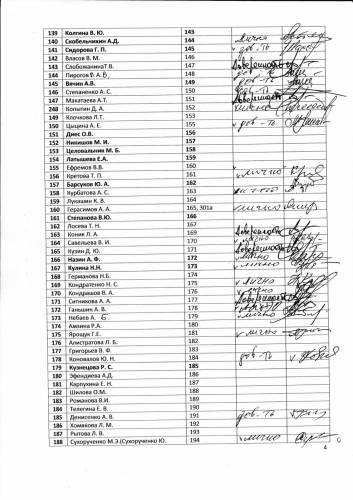 139 Колгина В. Ю. 143
140 Скобельчихин А.Д. 144 лично
141 Сидорова Г. П. 145 дов-ть
142 Власов В. М. 146
143 Слобожанина Г.В. 147 Доверенность
144 Пирогов В.А. 148 дов-ть
145 Вячин А.В. 149 дов-ть
146 Степаненко А. С. 150 дов-ть
147 Макатаева А.Т. 151 Доверенность
248 Копытин Д. А. 152 лично
149 Клочкова Л.Т. 153
150 Цыцина А. Е. 155 дов-ть
151 Диес О.В. 156
152 Никишов М. И. 157
153 Целовальник М. Б. 158
154 Латышева Е.А. 159
155 Ефремов В.В. 160
156 Кретова Т. П. 161 лично
157 Барсуков Ю. А. 162
158 Курбатова А. С. 163
159 Лукашин К. В. 164
160 Герасимов А. А. 165, 301а лично
161 Степанова В.Ю. 166
162 Лосева Т. Н. 167
164 Коник Л. А. 169 Доверенность
164 Савельева В. И. 170 лично
165 Кулик Д. Ю. 171 Доверенность
166 Назин А. Ф. 172 лично
167 Кулина Н.Н. 173 лично
168 Германова Н.Б. 174
169 Кондратенко Н. С. 175 лично
170 Кондрашов В. А. 176 лично
171 Ситникова А. А. 177 Доверенность
172 Ганьшин А. В. 178
173 Небаев А. Б. 179 лично
174 Ампина Р.А. 180
175 Ярощук Г.Г. 181 лично
176 Алистратова Л. Б. 182
177 Григорьева В. Ф. 183
178 Коновалов Ю. Н. 184 дов-ть
179 Кузнецова Р. С. 185
180 Эфендиева А.Д. 186
181 Карпухина Е. Н. 187
182 Шилова О.М. 188
183 Романова В.И. 189
184 Телегина Е. В. 190
185 Денисенко А. В. 191 дов-ть
186 Хомякова Л. М. 192
187 Рытова Л. В. 193
188 Сухорученко М.Э.(Сухорученко Ю. 194 лично
4